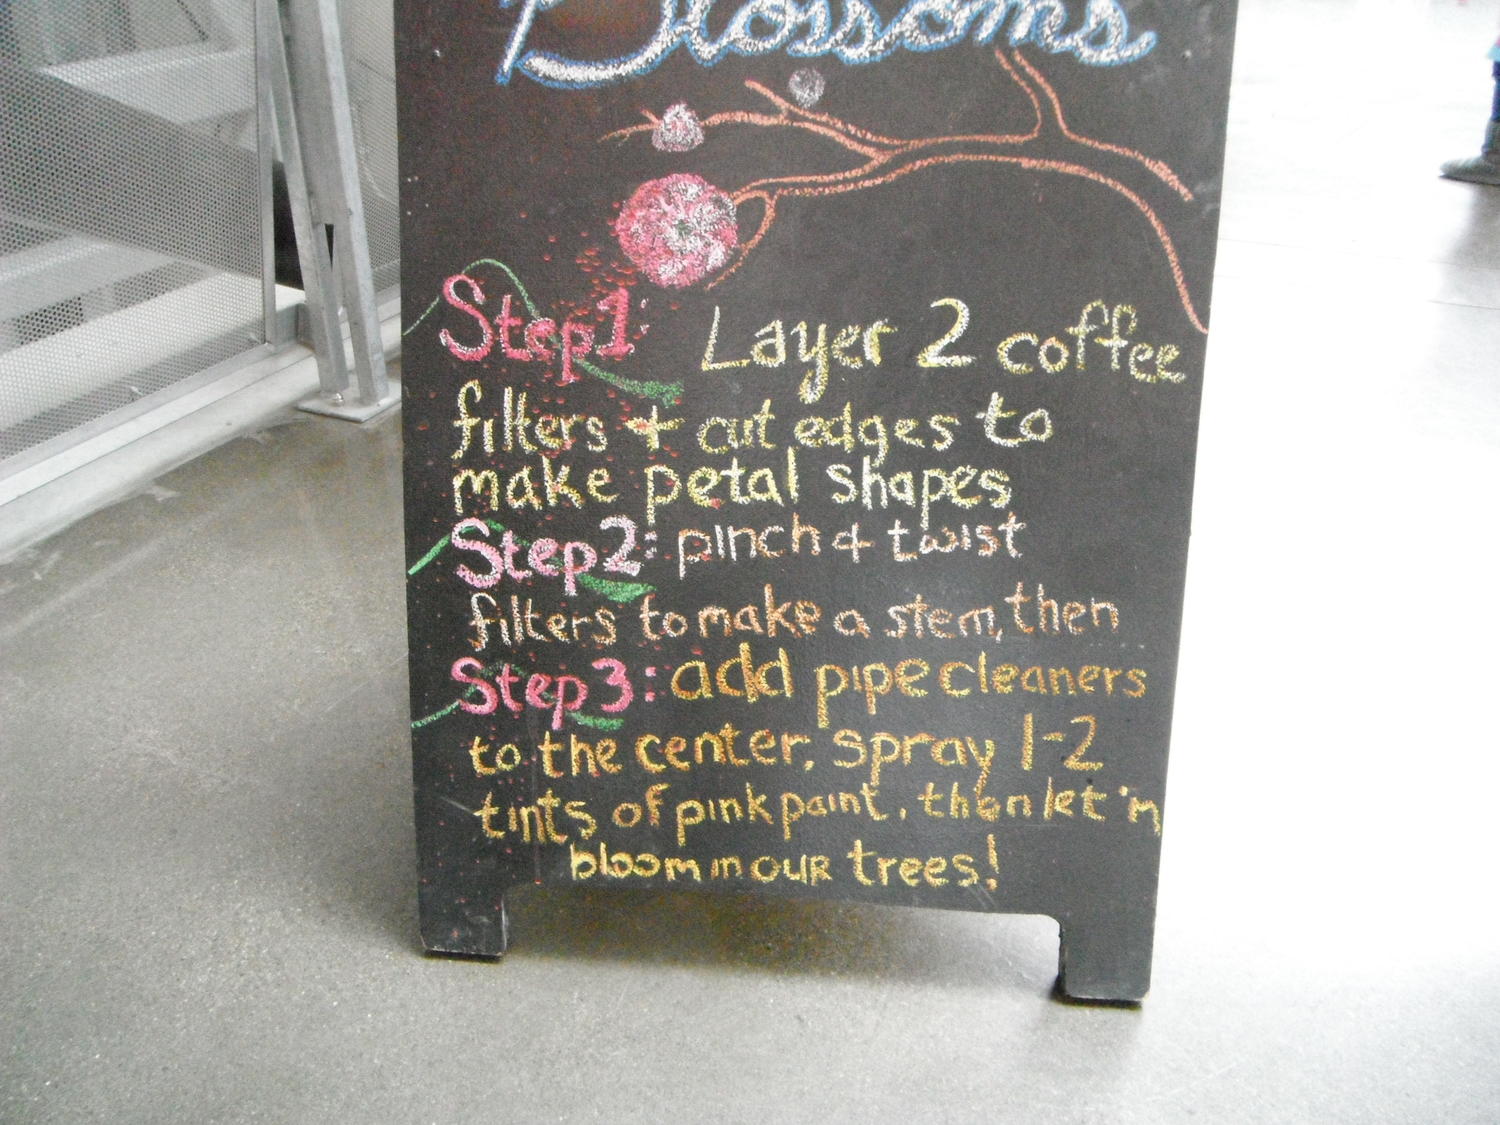 Blossoms
Step 1: Layer 2 coffee
filters + cut edges to
make petal shapes
Step 2: pinch + twist
filters to make a stem, then
Step 3: add pipe cleaners
to the center, spray 1-2
tints of pink paint, then let 'm
bloom in OUR trees!